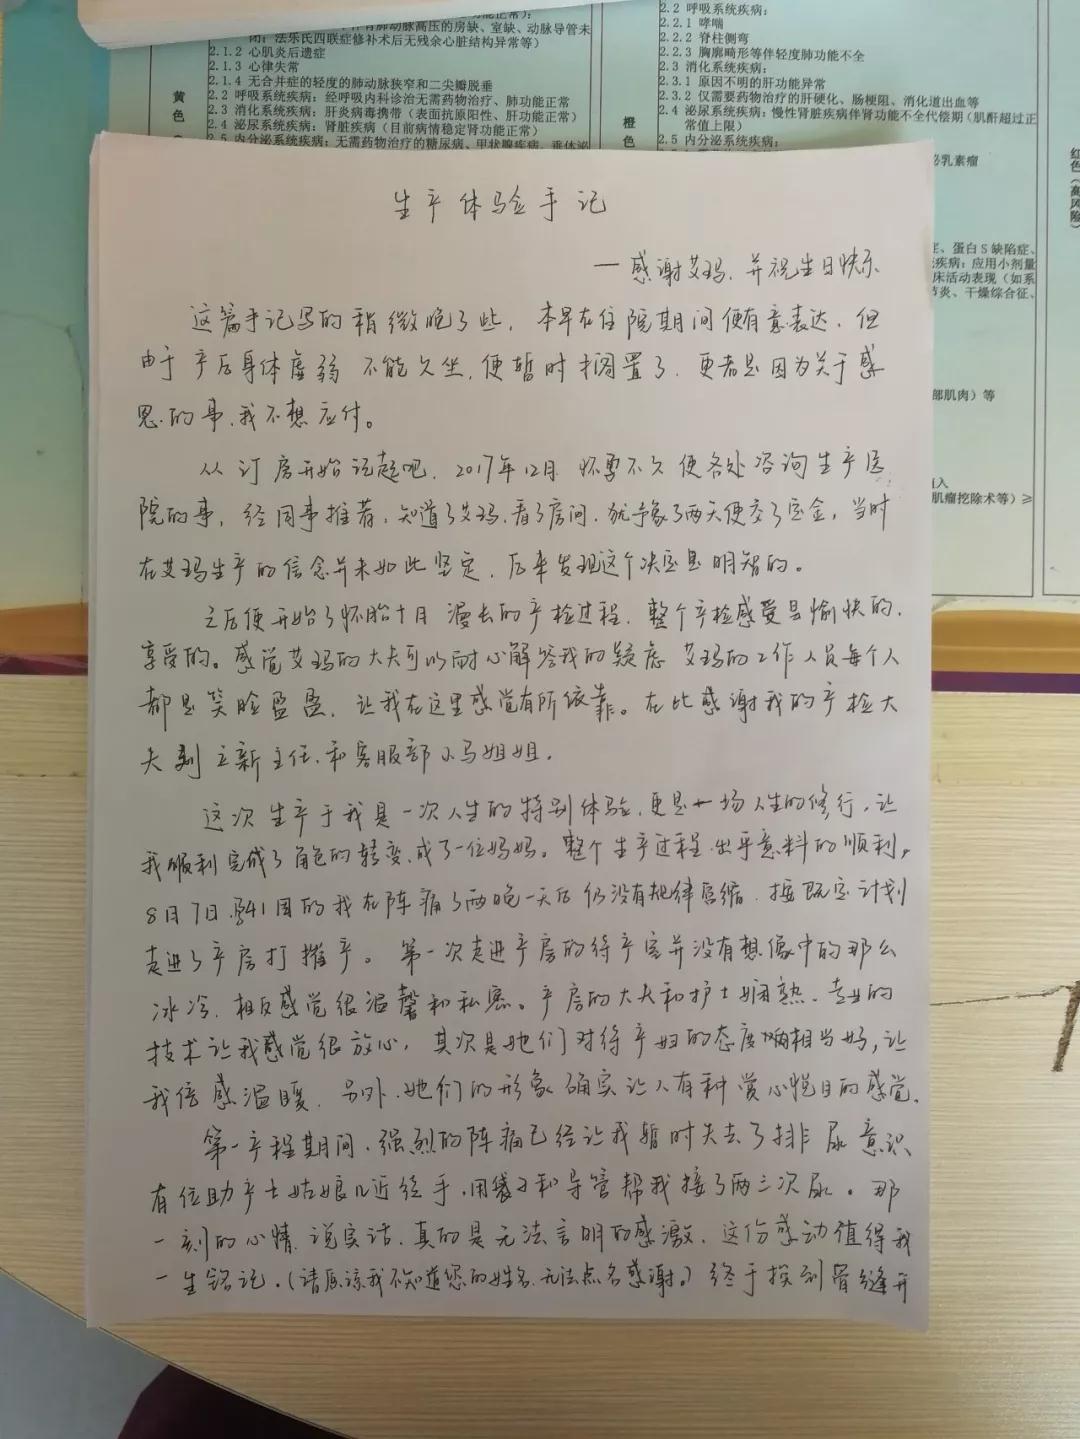 闭；法乐氏四联症修补术后无残余心脏结构异常等）
2.1.2 心肌炎后遗症
2.1.3 心律失常
2.1.4 无合并症的轻度的肺动脉狭窄和二尖瓣脱垂
2.2 呼吸系统疾病：经呼吸内科诊治无需药物治疗、肺功能正常
2.3 消化系统疾病：肝炎病毒携带（表面抗原阳性、肝功能正常）
2.4 泌尿系统疾病：肾脏疾病（目前病情稳定肾功能正常）
2.5 内分泌系统疾病：无需药物治疗的糖尿病、甲状腺疾病、垂体泌
黄
色
2.2 呼吸系统疾病：
2.2.1 哮喘
2.2.2 脊柱侧弯
2.2.3 胸廓畸形等伴轻度肺功能不全
2.3 消化系统疾病：
2.3.1 原因不明的肝功能异常
2.3.2 仅需要药物治疗的肝硬化、肠梗阻、消化道出血等
2.4 泌尿系统疾病：慢性肾脏疾病伴肾功能不全代偿期（肌酐超过正
常值上限）
2.5 内分泌系统疾病：
橙
色
泌乳素瘤
症、蛋白S缺陷症、
疾病：应用小剂量
床活动表现（如系
节炎、干燥综合征、
部肌肉）等
植入
肌瘤挖除术等）≥
红色（高风险）
生产体验手记
—感谢艾玛，并祝生日快乐
这篇手记写的稍微晚了些，本早在住院期间便有意表达，但
由于产后身体虚弱 不能久坐，便暂时搁置了，更者是因为关于感
恩的事，我不想应付。
从订房开始说起吧，2017年12月 怀孕不久便各处咨询生产医
院的事，经同事推荐，知道了艾玛，看了房间，犹豫了两天便交了定金，当时
在艾玛生产的信念并未如此坚定，后来发现这个决定是明智的。
之后便开始了怀胎十月 漫长的产检过程，整个产检感受是愉快的，
享受的。感觉艾玛的大夫可以耐心解答我的疑虑 艾玛的工作人员每个人
都是笑脸盈盈，让我在这里感觉有所依靠。在此感谢我的产检大
夫刘立新主任，和客服部小马姐姐。
这次生产于我是一次人生的特别体验，更是一场人生的修行，让
我顺利完成了角色的转变，成了一位妈妈。整个生产过程出乎意料的顺利，
8月7日，孕41周的我在阵痛了两晚一天后仍没有规律宫缩，按既定计划
走进了产房打催产。第一次走进产房的待产室并没有想像中的那么
冰冷，相反感觉很温馨和私密。产房的大夫和护士娴熟、专业的
技术让我感觉很放心，其次是她们对待产妇的态度啊相当好，让
我倍感温暖，另外，她们的形象确实让人有种赏心悦目的感觉，
第一产程期间，强烈的阵痛已经让我暂时失去了排尿意识
有位助产士姑娘几近徒手，用袋子和导管帮我接了两三次尿。那
一刻的心情，说实话，真的是无法言明的感激，这份感动值得我
一生铭记。（请原谅我不知道您的姓名，无法点名感谢。）终于挨到骨缝开